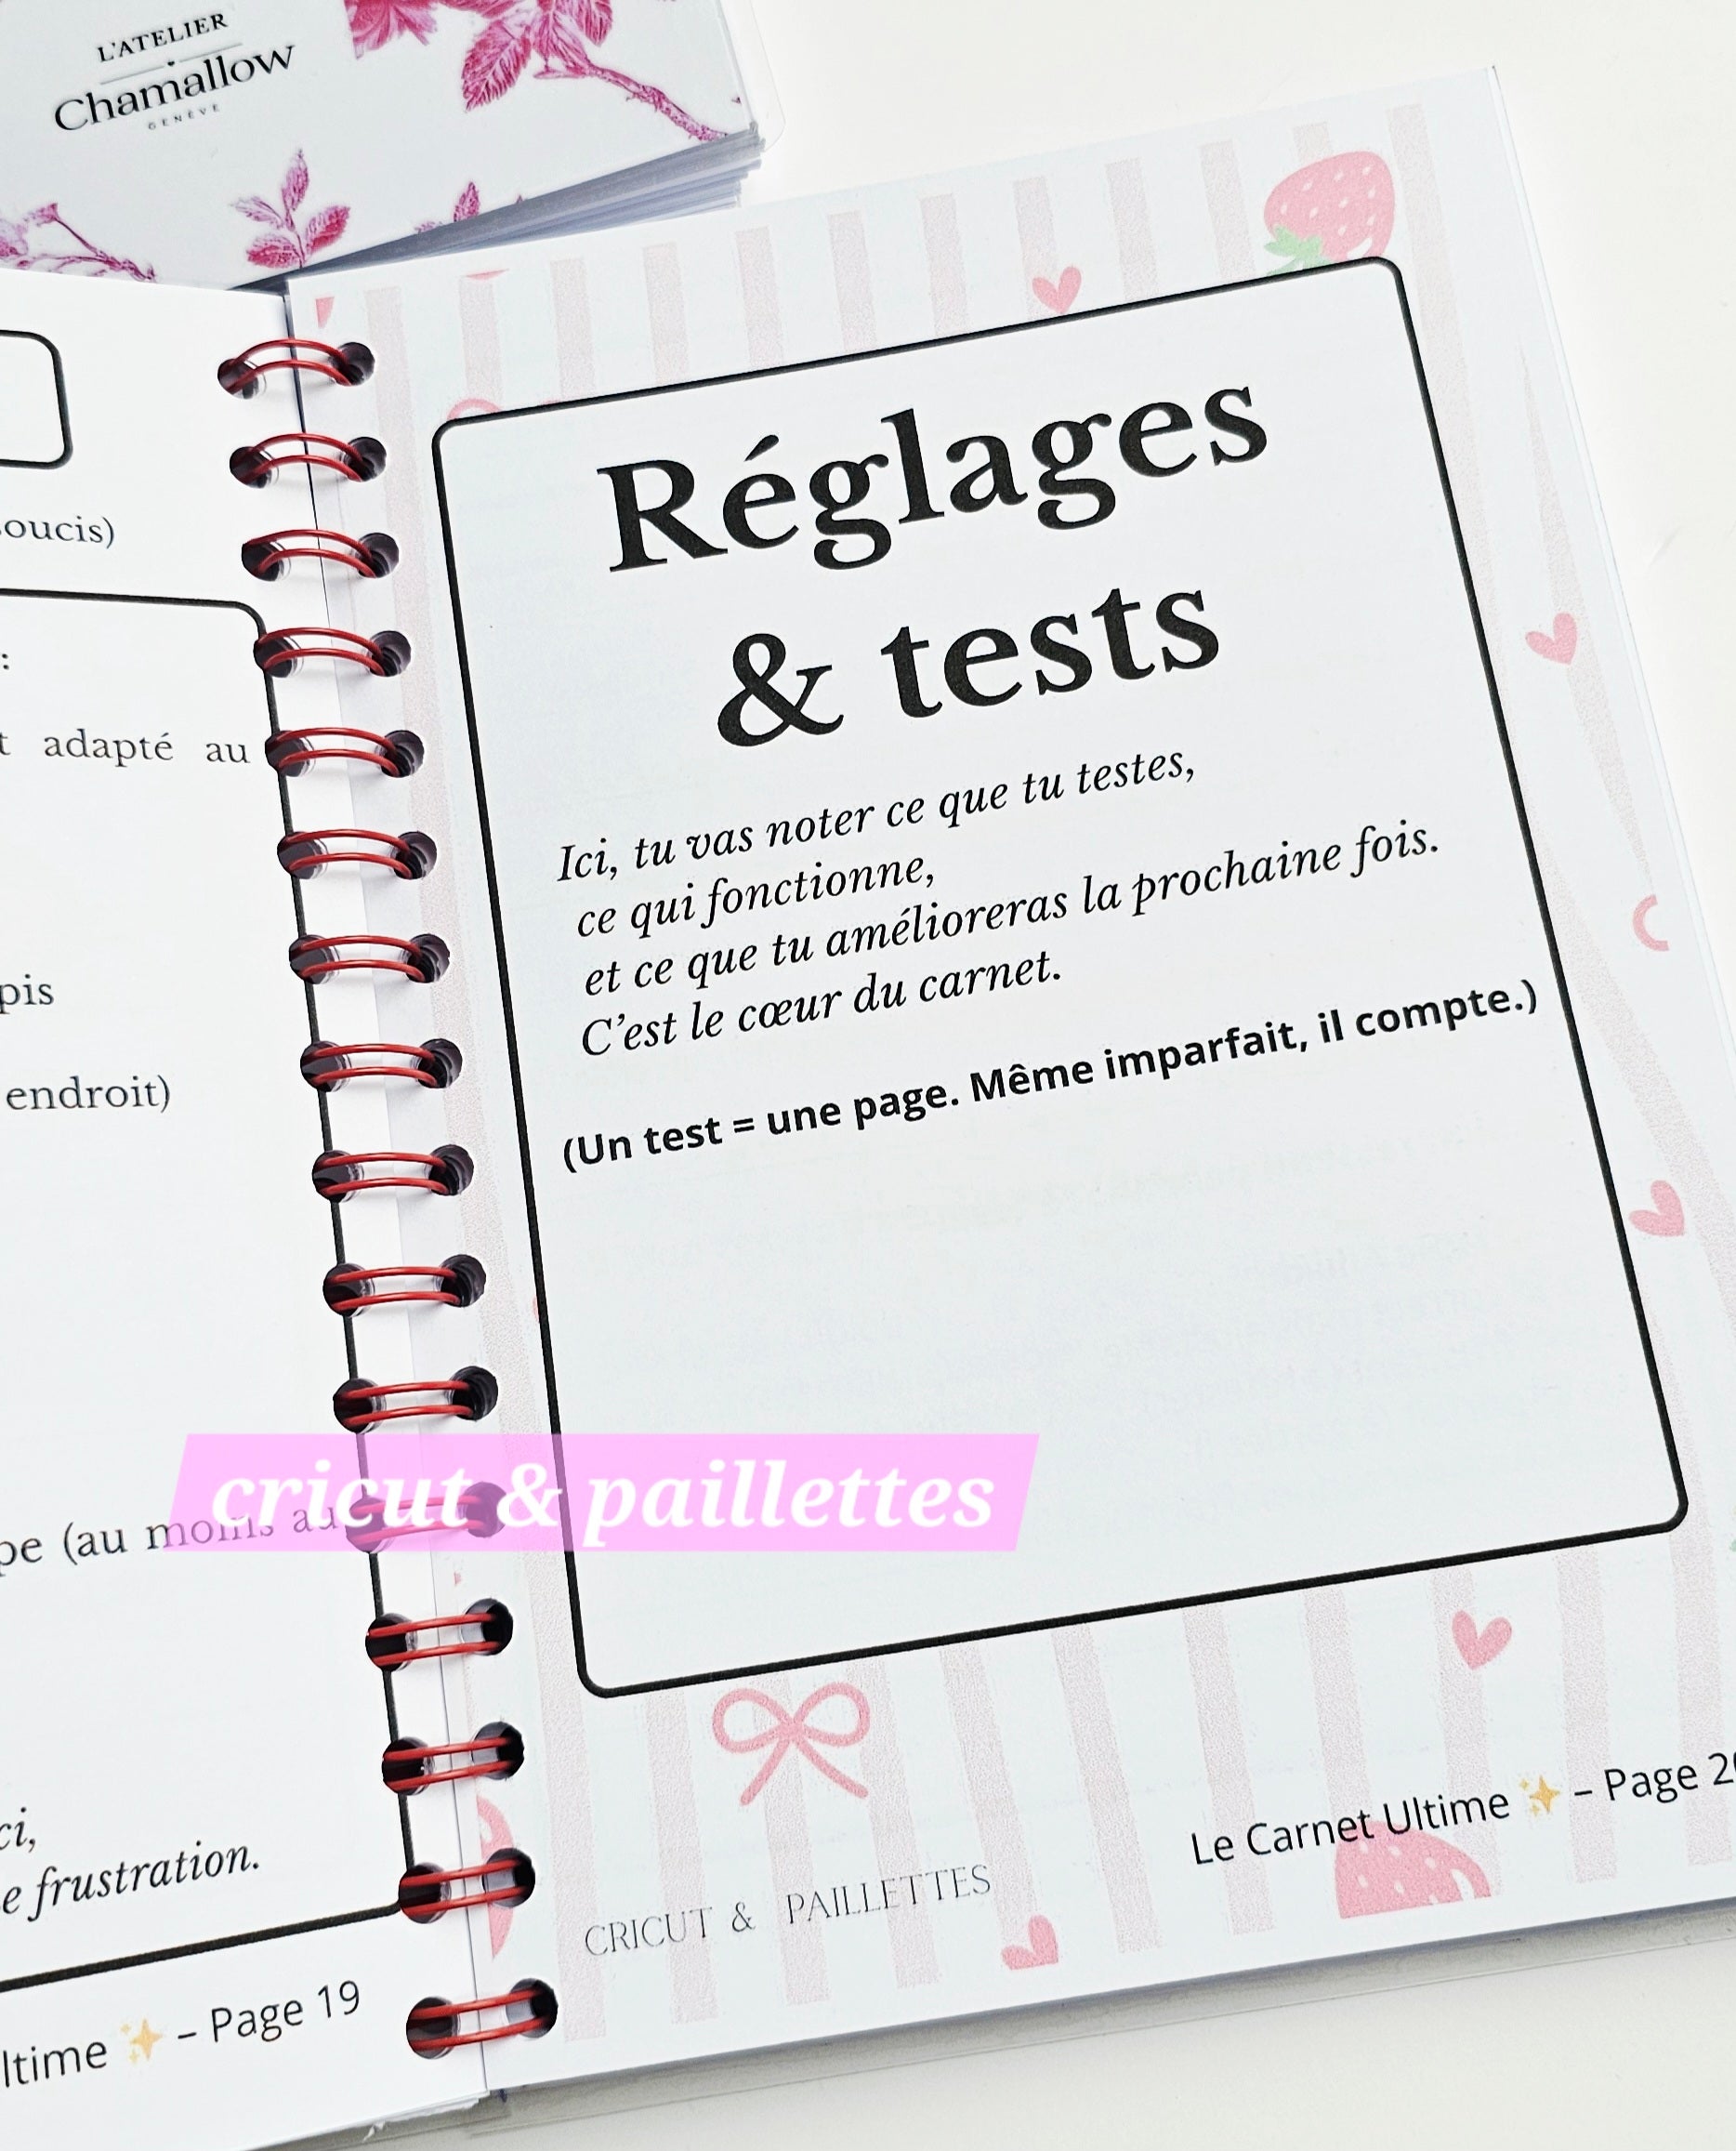 L'ATELIER
Chamallow
GENÈVE
:
adapté au
endroit)
(au moins au
frustration.
– Page 19
Réglages
& tests
Ici, tu vas noter ce que tu testes,
ce qui fonctionne,
et ce que tu amélioreras la prochaine fois.
C'est le cœur du carnet.
(Un test = une page. Même imparfait, il compte.)
cricut & paillettes
CRICUT & PAILLETTES
Le Carnet Ultime ✨ – Page